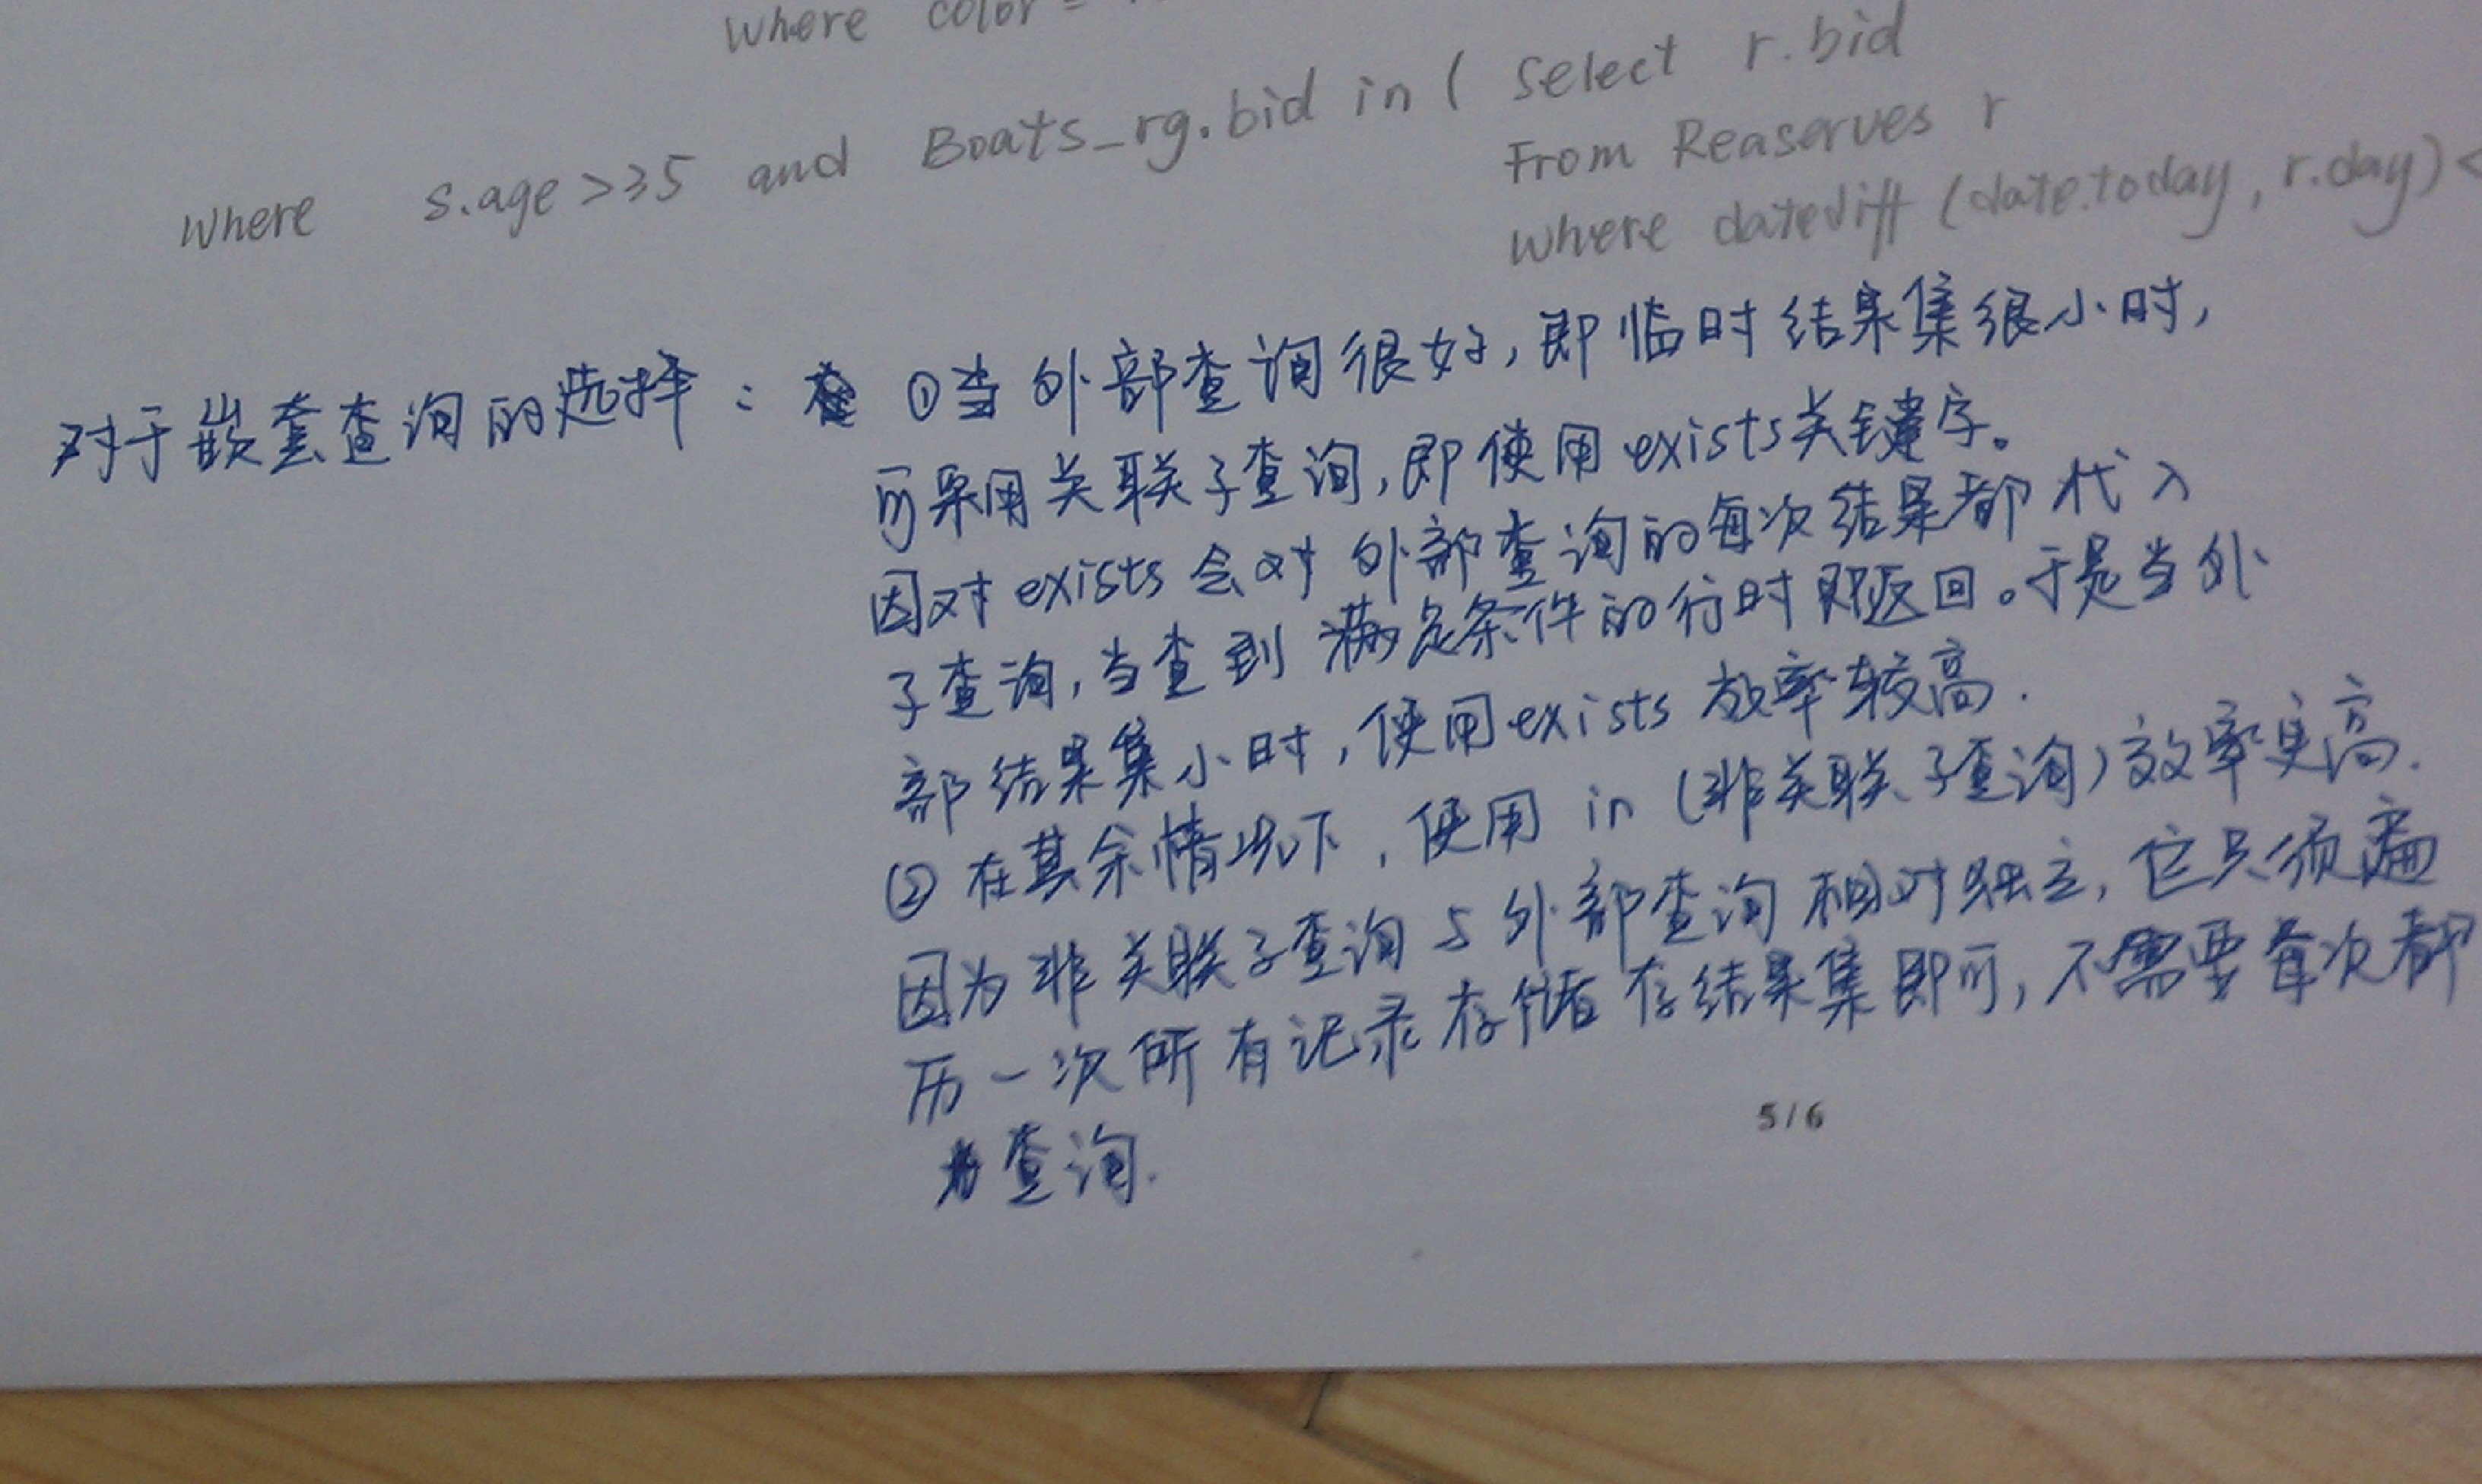 where color =
where s.age >35 and Boats_rg.bid in ( select r.bid
From Reaserves r
where datediff (date.today, r.day)<
对于嵌套查询的选择: ①当外部查询很好,即临时结果集很小时,
可采用关联子查询,即使用exists关键字。
因对exists会对外部查询的每次结果都代入
子查询,当查到满足条件的行时即返回。于是当外
部结果集小时,使用exists效率较高.
②在其余情况下,使用in(非关联子查询)效率更高.
因为非关联子查询与外部查询相对独立,它只须遍
历一次所有记录存储存结果集即可,不需要每次都
查询.
5/6